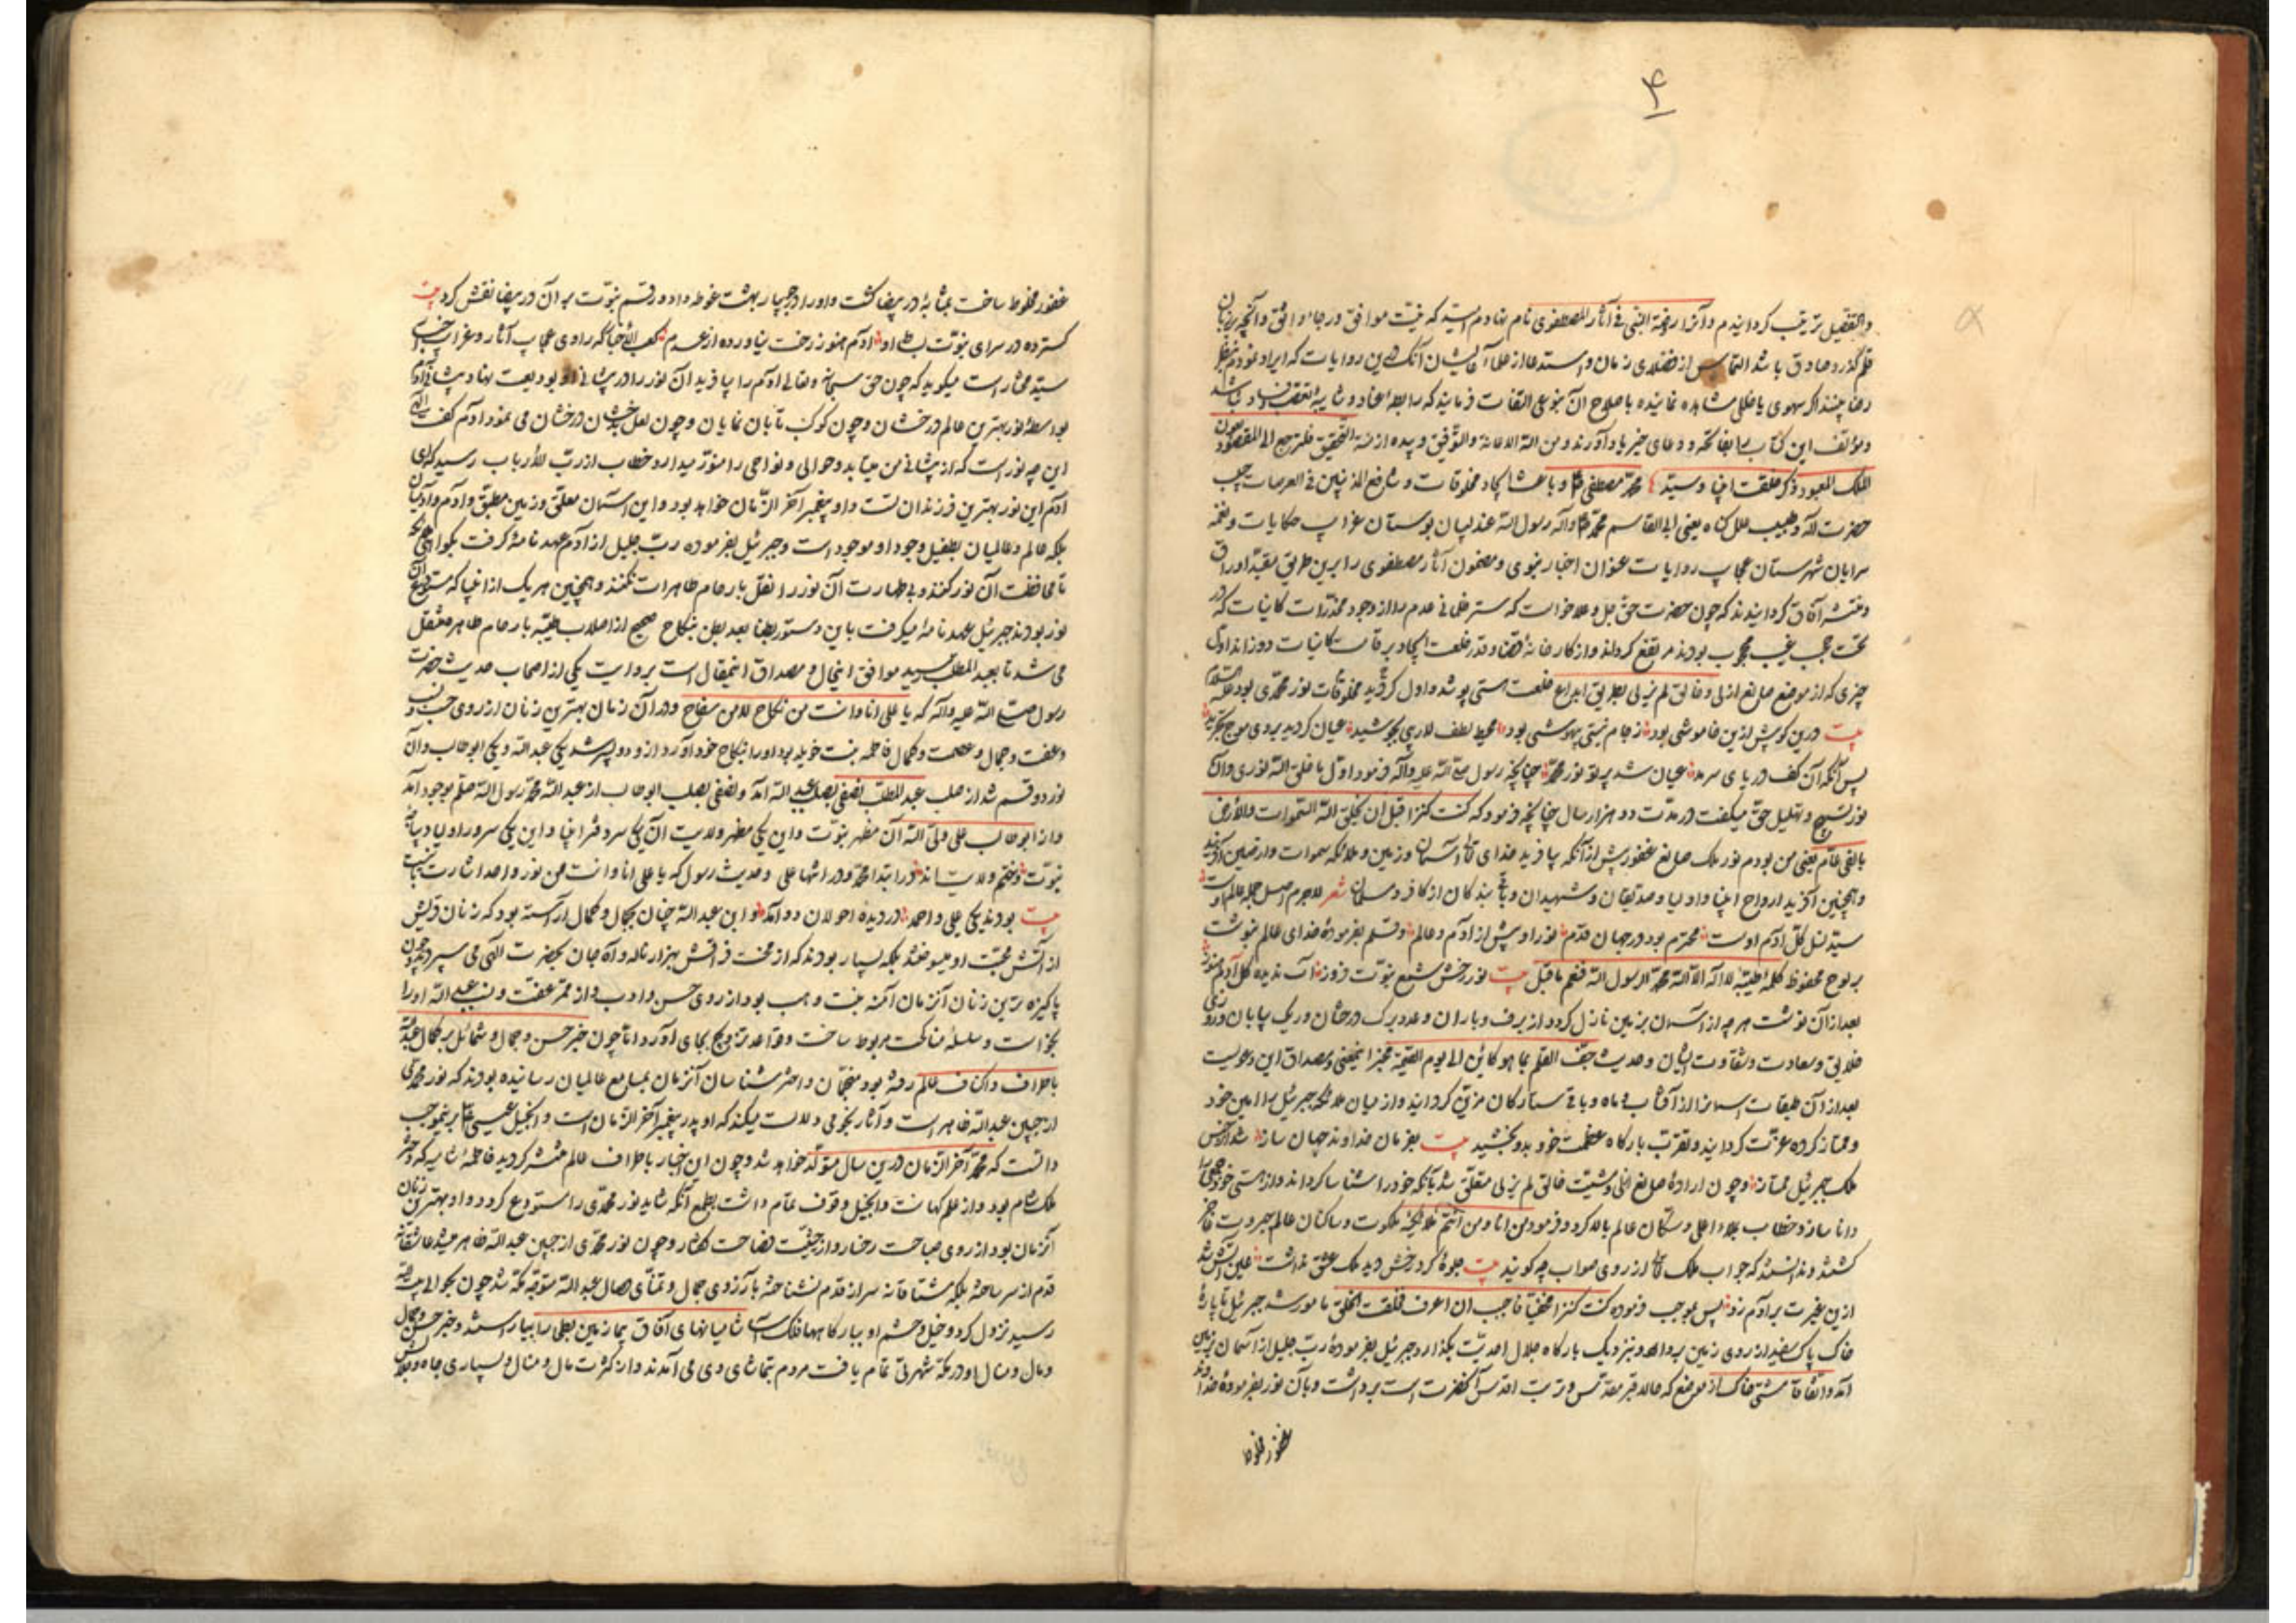 ۴
والتفصیل ترتیب کردانیدم وآنرا روضة النبی فی آثار المصطفوی نام نهادم امید که نیت موافق ورجاء واثق وآنچه بر زبان
قلم گذرد صادق باشد التماس از فضلای زمان واستدعا از علماء آنکه درین روایات که ایراد نمودم بنظر
رضا بینند اگر سهوی یا خللی مشاهده نمایند باصلاح آن نوعی التفات فرمایند که رابطه عناد وشایبه تعصب
ومؤلف این کتاب را بفاتحه ودعای خیر یاد آورند ومن الله الاعانة والتوفیق وبیده ازمة التحقیق فلنرجع الی المقصود بعون
الملک المعبود ذکر خلقت انبیا وسید محمد مصطفی وباعث ایجاد مخلوقات وشافع المذنبین فی العرصات حبیب
حضرت اله وطبیب علل کناه یعنی ابی القاسم محمد رسول الله عندلیبان بوستان غرایب حکایات ونغمه
سرایان شهرستان عجایب روایات عنوان اخبار نبوی ومضمون آثار مصطفوی را برین طریق
کردانیدند که چون حضرت حق جل وعلا خواست که ستر ظلمانی عدم را از وجود مخدرات کاینات که در
تحت حجب غیب محجوب بودند مرتفع کرداند واز کارخانه قضا وقدر خلعت ایجاد بر قامت کاینات دوزاند اول
چیزی که از موضع صانع ازلی وخالق لم یزلی بطریق ابداع خلعت هستی پوشد واول مخلوقات نور محمدی بود علیه السلام
بیت درین پیش ازین خاموشی بود ز جام نیستی بیهوشی بود محیط لطف بجوشید عیان کردید بروی موج
پس آنکه آن کف دریای سرمد عیان شد پرتو نور محمد چنانچه رسول صلی الله علیه وآله فرمود اول ما خلق الله نوری وآن
نور تسبیح وتهلیل حق میکفت در مدت دو هزار سال چنانچه فرمود که کنت کنزا قبل ان یخلق الله السموات والارض
بالفی عام یعنی من بودم نور ملک صانع غفور پیش از آنکه بیافریند خدای آسمان وزمین وملائکه سموات وارضین
وهمچنین آفرید ارواح انبیا واولیا وصدیقان وشهیدان وباقی بندکان از کافر ومسلمان شعر لاجرم اصل جمله عالم اوست
سید نسل کل آدم اوست محترم بود در جهان قدم نور او پیش از آدم وعالم وقلم بفرموده خدای عالم نوشت
بر لوح محفوظ کلمه طیبه لا اله الا الله محمد الرسول الله فنعم ما قیل بیت نور رخش شمع نبوت فروز آب ندیده کل آدم هنوز
بعد از آن نوشت هرچه از آسمان بر زمین نازل کردد از برف وباران وعدد برک درختان وریک بیابان وروزی
خلایق وسعادت وشقاوت ایشان وحدیث جف القلم بما هو کائن الی یوم القیمة مخبر اینمعنی ومصداق این دعویست
بعد از آن طبقات اسمانرا از آفتاب وماه وباقی ستارکان مزین کردانید واز میان ملائکه جبرئیل را امین خود
وممتاز کرده عزت کردانید وتقرب بارکاه عظمت خود بدو بخشید بیت بفرمان خداوند جهان ساز شد از
ملک جبرئیل ممتاز وچون اراده صانع ازلی ومشیت خالق لم یزلی متعلق شد بآنکه خود را شناسا کرداند واز هستی خود
دانا سازد وخطاب بملاء اعلی وسکان عالم بالا کرد وفرمود من انا ومن انتم ملائکه ملکوت وساکنان عالم جبروت
کشتند وندانستند که جواب ملک از روی صواب چه کویند بیت جلوهٔ کرد رخش دید ملک عشق نداشت عین آتش شد
ازین غیرت بر آدم زد پس بموجب فرموده کنت کنزا مخفیا فاحببت ان اعرف فخلقت الخلق مامور شد جبرئیل تا پارهٔ
خاک پاک سفید از روی زمین بردارد ونزدیک بارکاه جلال احدیت بگذارد جبرئیل بفرمودهٔ رب جلیل از آسمان بزمین
آمد واتفاقا مشتی خاک از موضع که حالا قبر مقدس وتربت اقدس آنحضرت است برداشت وبا آن نور بفرمودهٔ خدا
غفور مخلوط
غفور مخلوط ساخت بمثابهٔ در بیضا کشت واورا در چهار بهشت غوطه داد ورقم نبوت بر آن در بیضا نقش کرد بیت
کسترده در سرای نبوت بساط او آدم هنوز رخت نیاورده از عدم کعب الاحبار که راوی عجایب آثار وغرایب
سید مختار است میکوید که چون حق سبحانه وتعالی آدم را بیافرید آن نور را در پیشانی او بودیعت نهاد وپیشانی آدم
بواسطهٔ نور بهترین عالم درخشان وچون کوکب تابان نمایان وچون لعل درخشان می نمود آدم کفت الهی
این چه نور است که از پیشانی من میتابد وحوالی ونواحی را منور میدارد خطاب از رب الارباب رسید که ای
آدم این نور بهترین فرزندان تست واو پیغمبر آخر الزمان خواهد بود واین آسمان معلق وزمین مطبق وآدم وآدمیان
بلکه عالم وعالمیان بطفیل وجود او موجود است وجبرئیل بفرموده رب جلیل از آدم عهدنامهٔ کرفت بکواهی
تا محافظت آن نور کنند وبی طهارت آن نور را نقل بارحام طاهرات نکنند وهمچنین هر یک از انبیا که مستودع آن
نور بودند جبرئیل عهدنامه میکرفت باین دستور بطنا بعد بطن بنکاح صحیح از اصلاب طیبه بارحام طاهره منتقل
می شد تا بعبد المطلب رسید موافق اینحال ومصداق اینمقال است بروایت یکی از اصحاب حدیث حضرت
رسول صلی الله علیه وآله که یا علی انا وانت من نکاح لا من سفاح ودر آن زمان بهترین زنان از روی حسب
وعفت وجمال وعصمت وکمال فاطمه بنت بود اورا بنکاح خود آورد از ودو پسر شد یکی عبد الله ویکی ابوطالب وآن
نور دو قسم شد از صلب عبد المطلب نصفی بصلب عبد الله آمد ونصفی بصلب ابوطالب از عبد الله محمد رسول الله صلعم بوجود آمد
واز ابوطالب علی ولی الله آن مظهر نبوت واین یکی مظهر ولایت آن یکی سر دفتر انبیا واین یکی سرور اولیا
نبوت وختم ولایت در ابتدا محمد ودر انتها علی وحدیث رسول که یا علی انا وانت من نور واحد اشارت
بیت بودند یکی علی واحمد در دیده احولان دو آمد واین عبد الله چنان بجمال وکمال آراسته بود که زنان قریش
از آتش محبت او میسوختند بلکه بسیار بودند که از محنت فراقش بهزار ناله وآه جان بحضرت الهی می سپردند وچون
پاکیزه ترین زنان آنزمان آمنه بنت وهب بود از روی حسن وادب عفت ونسب عبد الله اورا
بخواست وسلسلهٔ مناکحت مربوط ساخت وقواعد تزویج بجای آورد اما چون خبر حسن وجمال وشمائل پر کمال عبد الله
باطراف واکناف عالم رفته بود ومنجمان واختر شناسان آنزمان بمسامع عالمیان رسانیده بودند که نور محمدی
از جبین عبد الله ظاهر است وآثار نجومی دلالت میکند که او پدر پیغمبر آخر الزمان است وانجیل عیسی برینموجب
دانست که محمد آخر الزمان درین سال متولد خواهد شد وچون این اخبار باطراف عالم منتشر کردید فاطمهٔ شامیه که دختر
ملک شام بود واز علم کهانت وانجیل وقوف تمام داشت بطمع آنکه شاید نور محمدی را مستودع کردد واو بهترین زنان
آنزمان بود از روی صباحت رخسار واز حیثیت فصاحت کفتار وچون نور محمدی از جبین عبد الله ظاهر میشد عاشقانه
قدم از سر ساخته بلکه مشتاقانه سر از قدم نشناخته بآرزوی جمال وتمنای وصال عبد الله متوجه مکه شد چون بحوالی بیت الله
رسید نزول کرد وخیل وحشم او ببارکاهها فلک سا بزمین بطحی را بیاراستند وخبر حسن وجمال
ومال ومنال او در مکه شهرتی تمام یافت مردم بتماشای وی می آمدند واز کثرت مال ومنال وبسیاری جاه